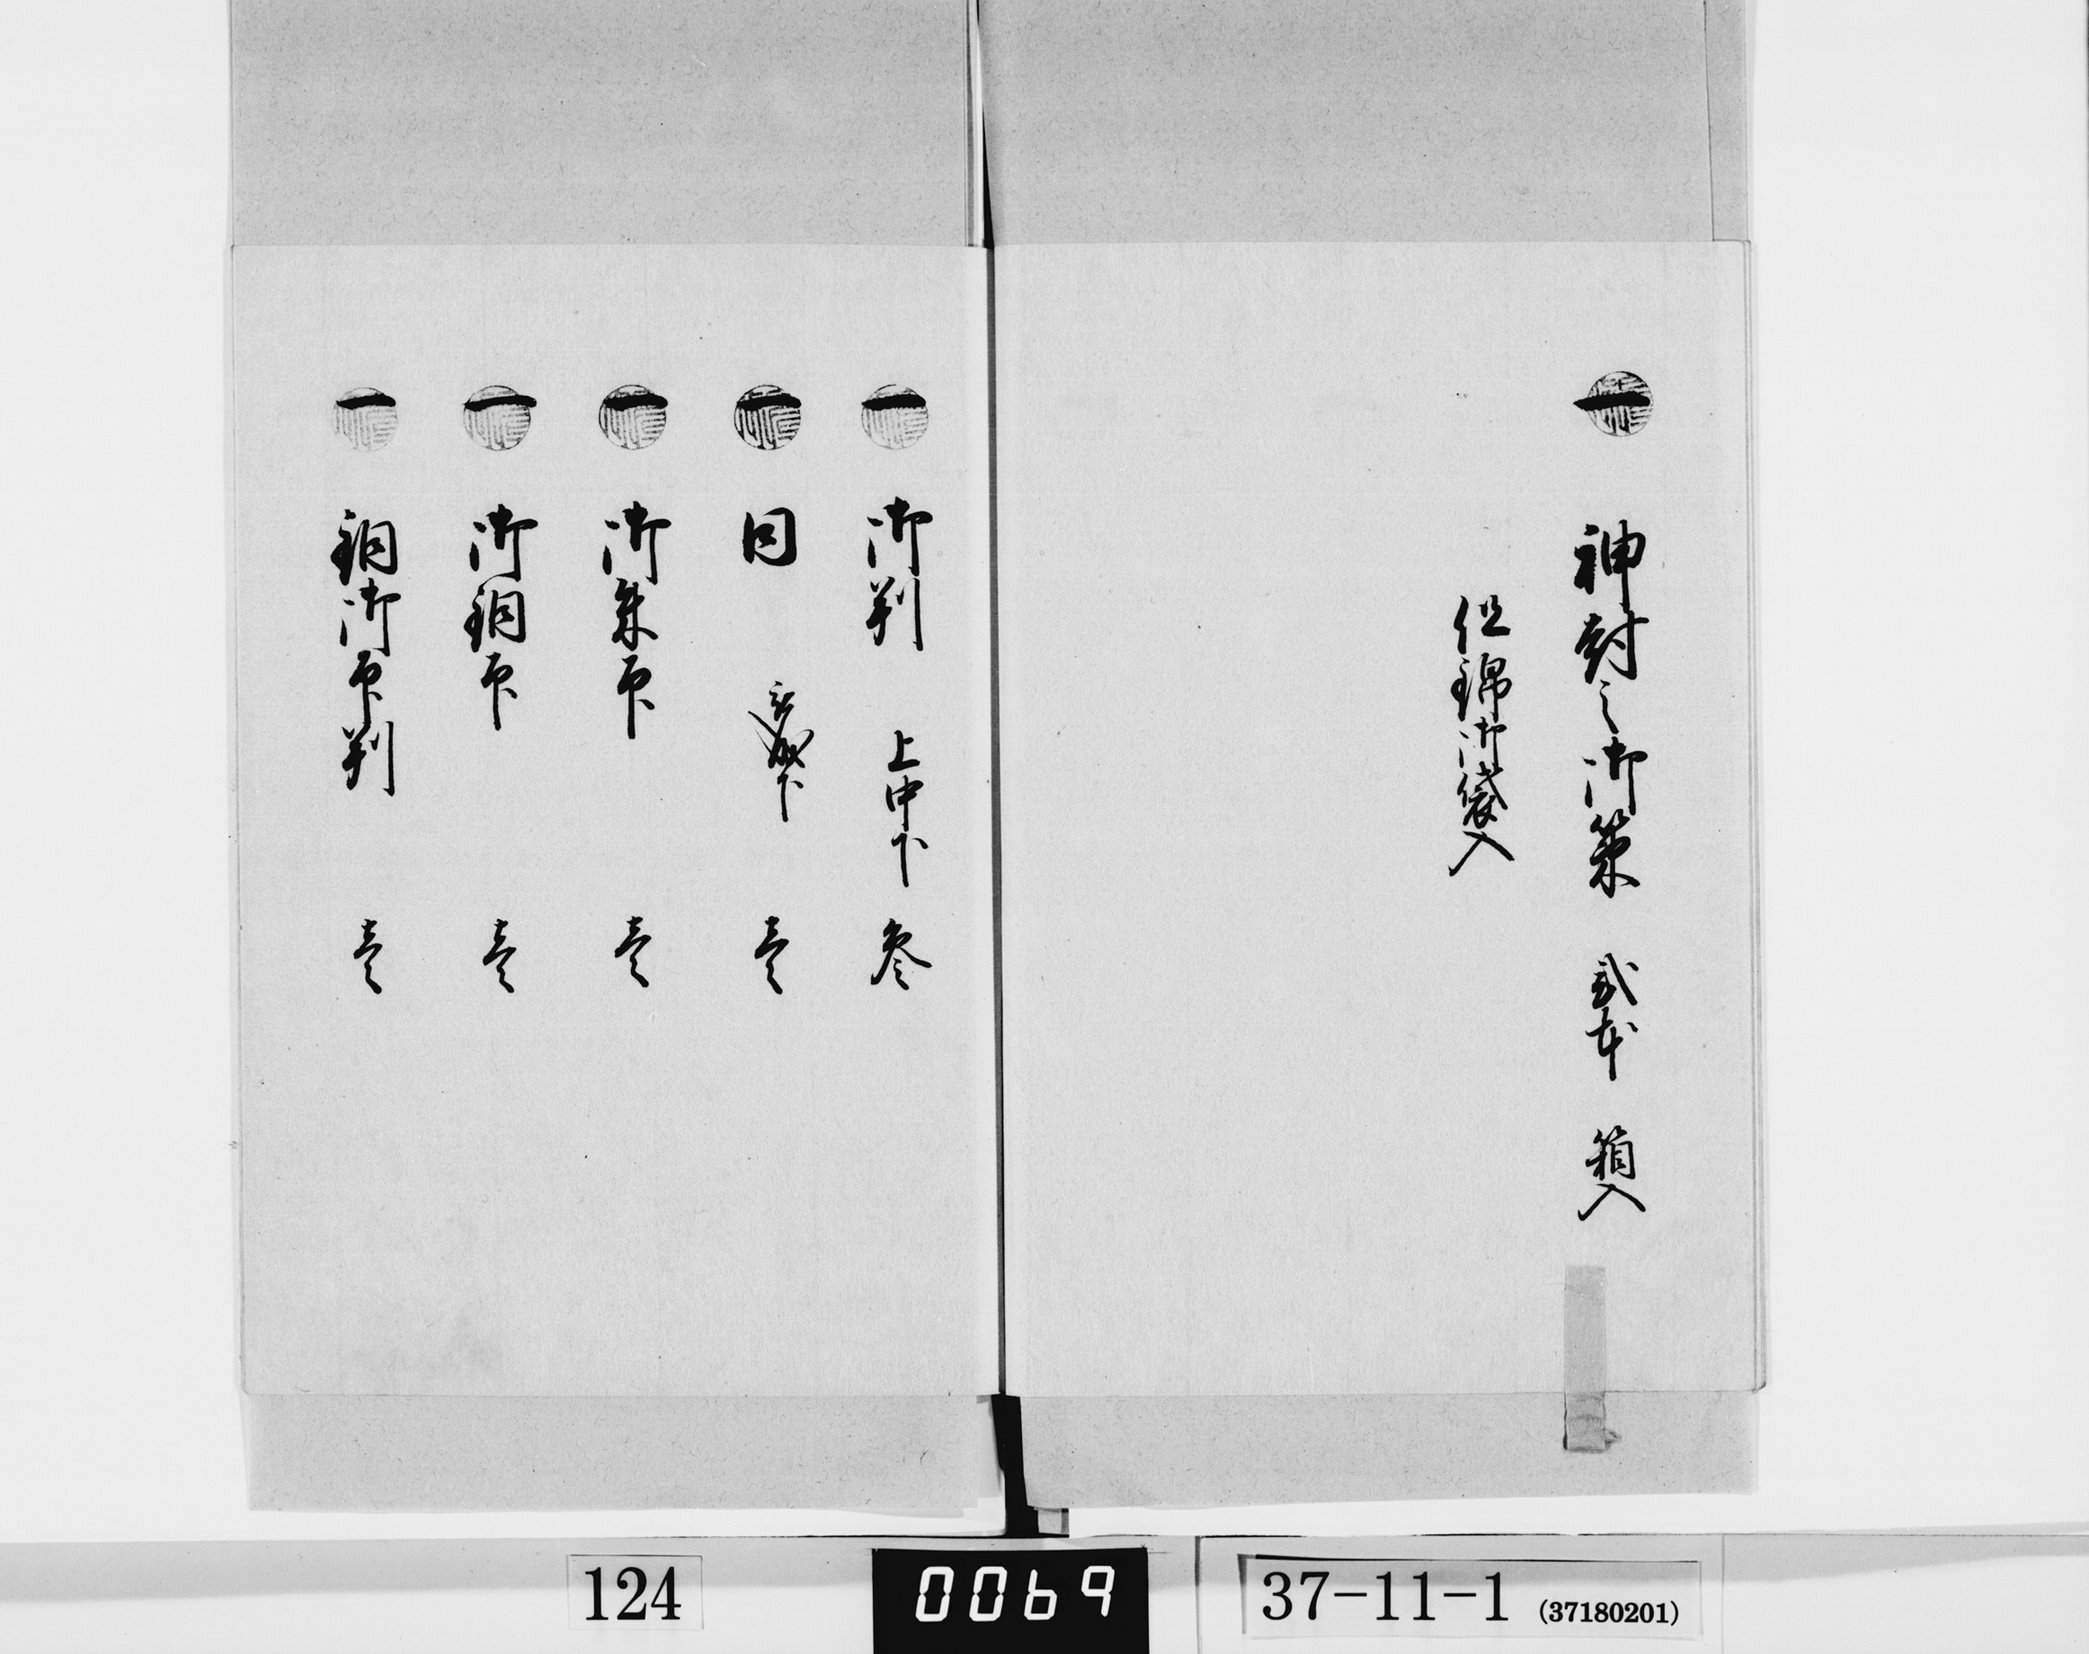 一 神封之御策 弐本 箱入
但錦御袋入
一 御判 上中下 参
一 同 下 壱
一 御朱印 壱
一 御銅印 壱
一 銅御印判 壱
124
0069
37-11-1 (37180201)